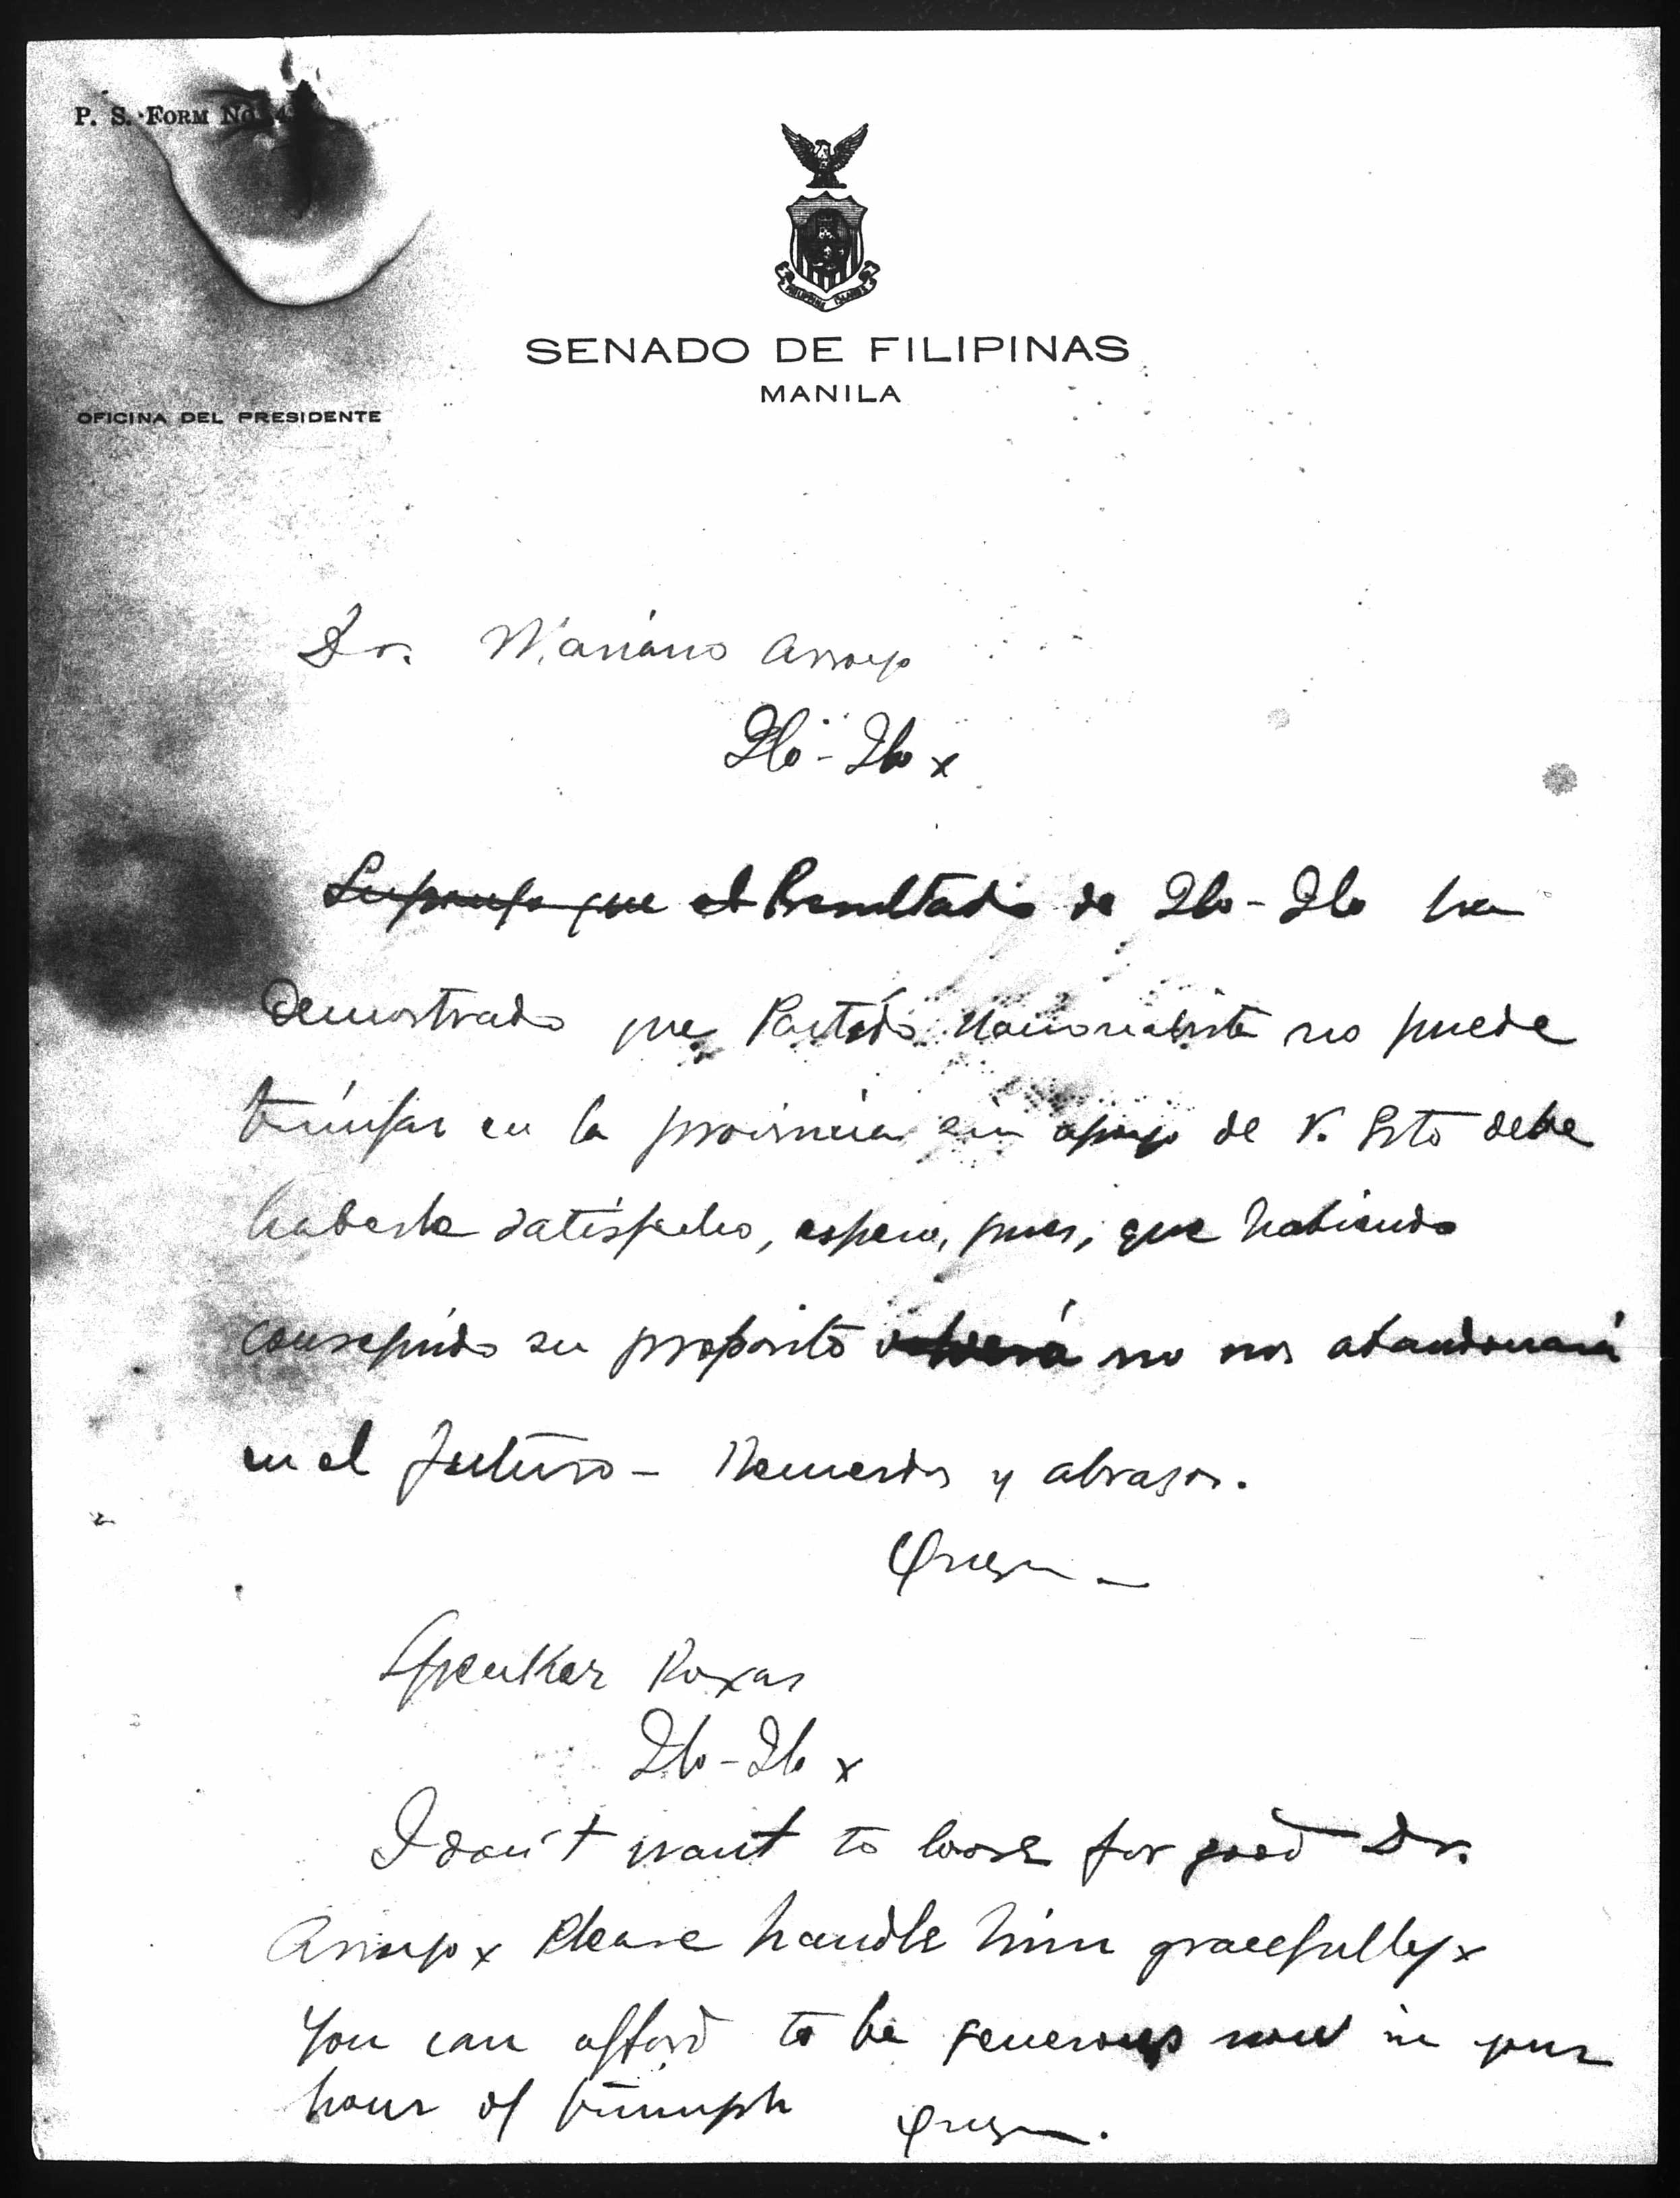 P. S. FORM No. 4
PHILIPPINE ISLANDS
SENADO DE FILIPINAS
MANILA
OFICINA DEL PRESIDENTE
Dr. Mariano Arroyo
Ilo-Ilo x
Supongo que el Resultado de Ilo-Ilo ha
demostrado que Partido Nacionalista no puede
triunfar en la provincia sin apoyo de V. Esto debe
haberle satisfecho, espero, pues, que habiendo
conseguido su proposito volverá no nos abandonará
en el futuro - Recuerdos y abrazos.
Quezon -
Speaker Roxas
Ilo-Ilo x
I don't want to loose for good Dr.
Arroyo x Please handle him gracefully x
You can afford to be generous now in your
hour of triumph Quezon.